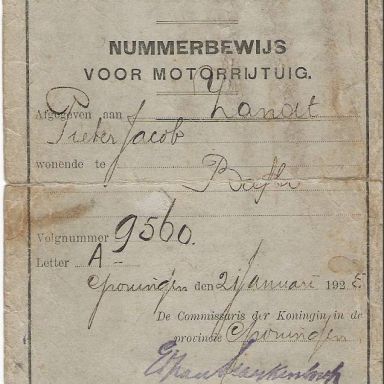 NUMMERBEWIJS
VOOR MOTORRIJTUIG.
Afgegeven aan Zandt
Pieter Jacob
wonende te
Volgnummer 9560.
Letter A-
Groningen den 2 Januari 1925
De Commissaris der Koningin in de
provincie Groningen